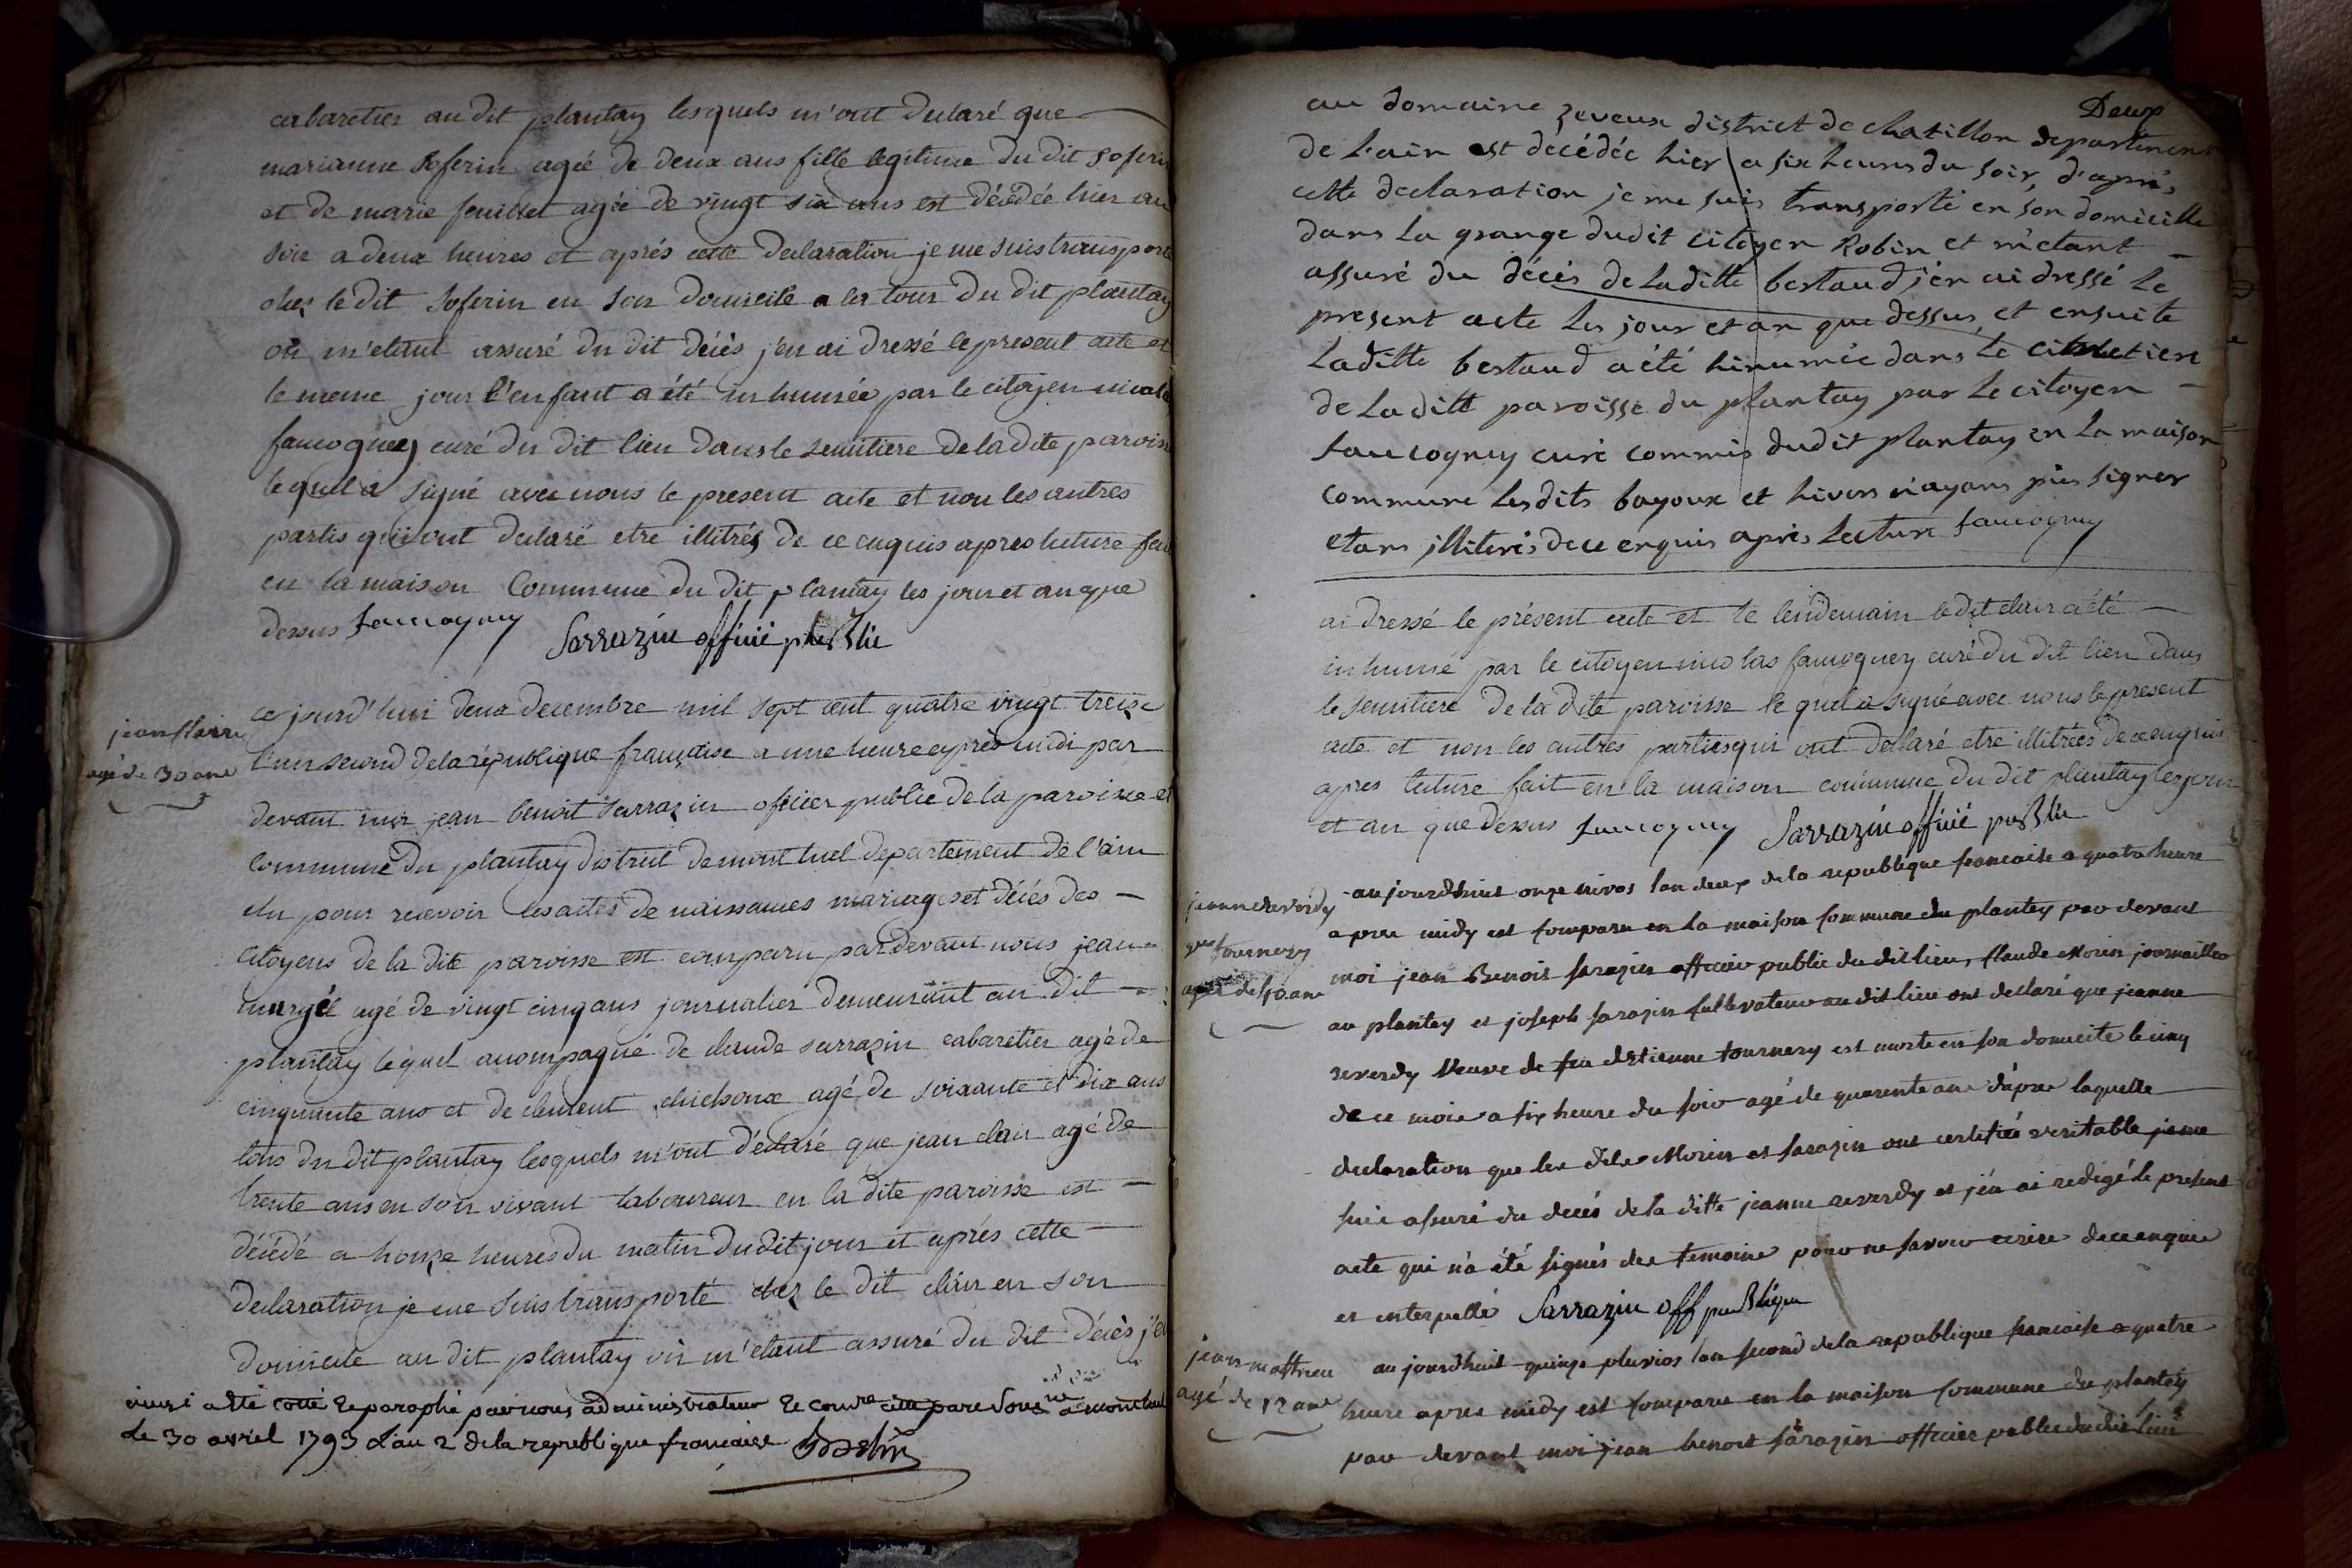 cabaretier au dit plantay lesquels m'ont declaré que
marianne soferin agée de deux ans fille legitime du dit soferin
et de marie feuillet agée de vingt six ans est décédée hier au
soir a deux heures et aprés cette declaration je me suis transporté
chez le dit soferin en son domicile a les tours du dit plantay
où m'etant assuré du dit décès j'en ai dressé le present acte et
le meme jour l'enfant a été inhumée par le citoyen nicolas
faucogney curé du dit lieu dans le semitiere de la dite paroisse
le quel a signé avec nous le present acte et non les autres
partis qui ont declaré etre illitrés de ce enquis apres lecture fait
en la maison Commune du dit plantay les jour et an que
dessus faucogney Sarrazin officié publlic
jean clair
agé de 30 ans
ce jourd'hui deux decembre mil sept cent quatre vingt treize
l'an second de la république française a une heure après midi par
devant moi jean benoit sarrazin officier public de la paroisse et
commune du plantay district de montluel departement de l'ain
elu pour recevoir les actes de naissances mariages et décés des
citoyens de la dite paroisse est comparu pardevant nous jean
agé de vingt cinq ans journalier demeurant au dit
plantay lequel accompagné de claude sarrazin cabaretier agé de
cinquante ans et de clement agé de soixante et dix ans
tous du dit plantay lesquels m'ont déclaré que jean clair agé de
trente ans en son vivant laboureur en la dite paroisse est
décédé a honze heures du matin du dit jour et aprés cette
declaration je me suis transporté chez le dit clair en son
domicile au dit plantay où m'etant assuré du dit décès j'en
a été cotté et paraphé par nous administrateur
le 30 avril 1793 l'an 2 de la republique francaise
Deux
au domaine zeveux district de chatillon departement
de l'ain est décédée hier a six heures du soir, d'après
cette declaration je me suis transporté en son domicille
dans la grange dudit citoyen Robin et m'etant
assuré du décès de laditte bertaud j'en ai dressé le
present acte les jour et an que dessus, et ensuite
laditte bertaud a été hinumée dans le cimetiere
de laditt paroisse du plantay par le citoyen
faucogney curé commis dudit plantay en la maison
commune lesdits bayoux et hivers n'ayans pus signer
etans illiterés de ce enquis après lecture faucogney
ai dressé le présent acte et le lendemain ledit clair a été
inhumé par le citoyen nicolas faucogney curé du dit lieu dans
le semitiere de la dite paroisse le quel a signé avec nous le present
acte et non les autres parties qui ont declaré etre illitrées de ce enquis
apres lecture fait en la maison commune du dit plantay les jour
et an que dessus faucogney Sarrazin officié publlic
jeanne reverdy
tournery
agée de 40 ans
aujourdhuit onze nivos lan deux de la republique francaise a quatre heure
apres midy est comparu en la maison commune du plantey par devant
moi jean Benoit sarazin officier public du dit lieu, claude Morin journaillier
au plantey et joseph sarazin cultivateur au dit lieu ont declaré que jeanne
reverdy veuve de feu etienne tournery est morte en son domicile le cinq
de ce mois a six heure du soir agé de quarente ans d'après laquelle
declaration que les dits Morin et sarazin ont certifiés veritable je me
suis assuré du decés de la ditte jeanne reverdy et j'en ai redigé le present
acte qui n'a été signés des temoins pour ne savoir ecrire de ce enquis
et interpellé Sarrazin off publique
jean mathieu
agé de 12 ans
aujourdhuit quinze pluvios l'an second de la republique francaise a quatre
heure apres midy est comparu en la maison commune du plantey
par devant moi jean benoit sarazin officier public du dit lieu